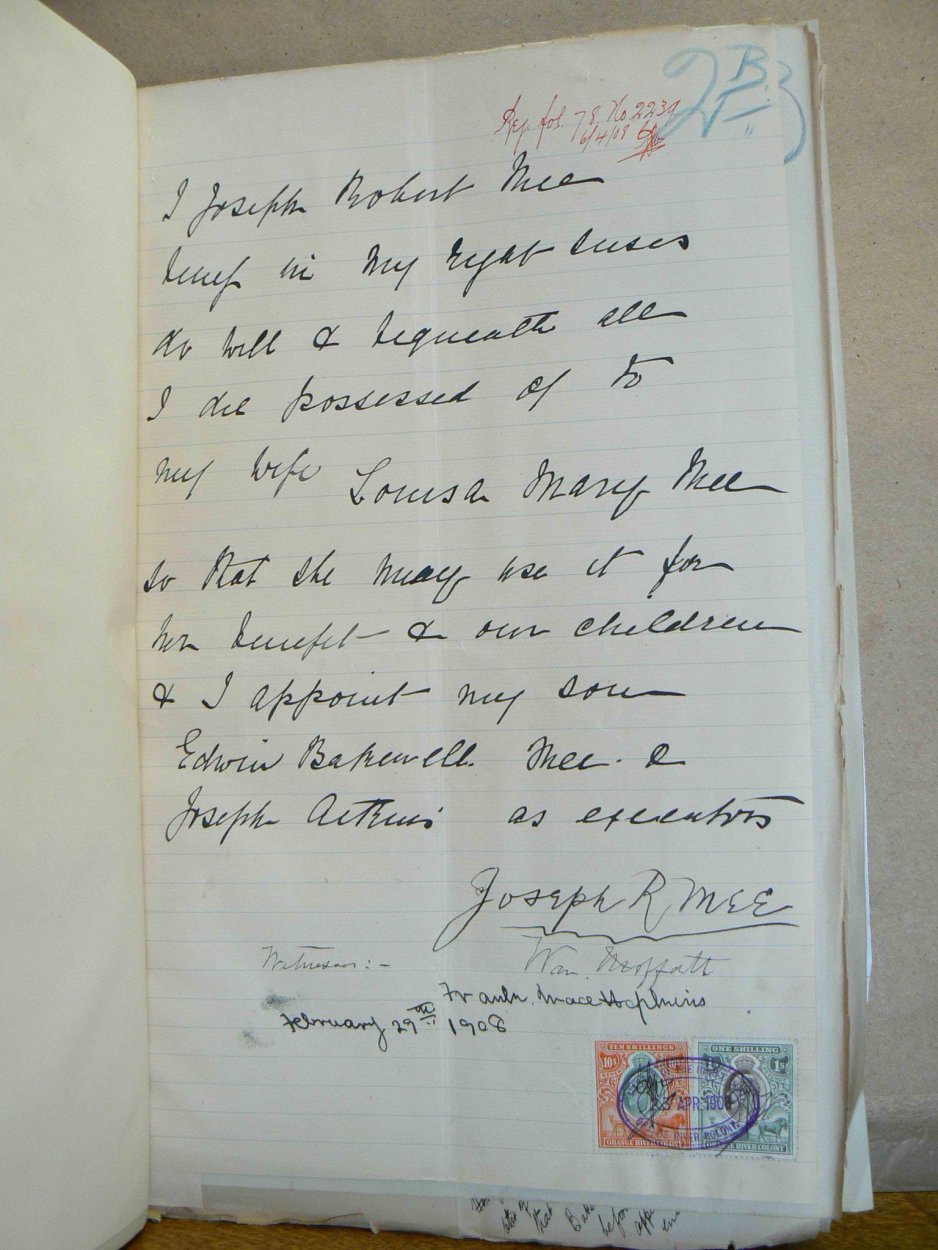 2 B 3
Reg. fol. 78, No 2239
6/4/08
I Joseph Robert Mee
being in my right senses
do will & bequeath all
I die possessed of to
my wife Louisa Mary Mee
so that she may use it for
her benefit & our children
& I appoint my son
Edwin Bakewell Mee &
Joseph Atkins as executors
Joseph R Mee
Witnesses:- Wm. Moffatt
Frank Mace Hopkins
February 29th 1908
TEN SHILLINGS ONE SHILLING
10s 1s
APR 1908
ORANGE RIVER COLONY
ORANGE RIVER COLONY RIVER COLONY